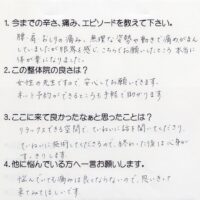 1. 今までの辛さ、痛み、エピソードを教えて下さい。
腰、首、おしりの痛み、無理な姿勢や動きで痛めがまん
していましたが限界を感じこちらでお願いしたところ本当に
体が楽になりました。
2. この整体院の良さは？
女性の先生ですので、安心してお願いできます。
ネット予約ができるところも手軽で助かります
3. ここに来て良かったなぁと思ったことは？
リラックスできる空間で、ていねいに話を聞いてくださり、
ていねいに施術してくださるので、終わった後は心身が
すっきりします。
4. 他に悩んでいる方へ一言お願いします。
悩んでいても痛みは良くならないので、思いきって
来てみてほしいです。